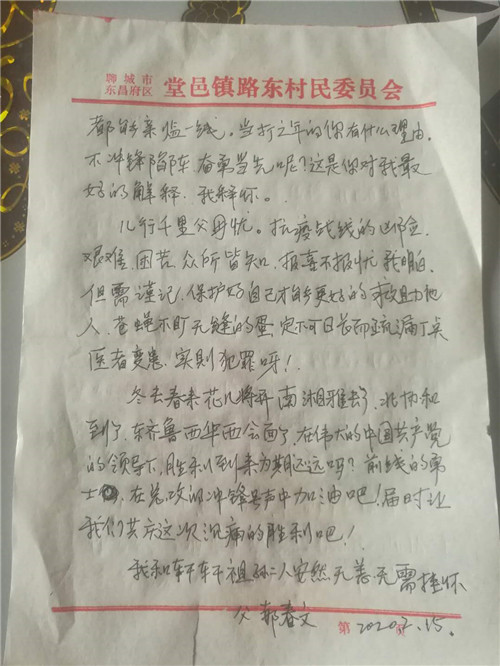 聊城市
东昌府区 堂邑镇路东村民委员会
都能亲临一线。当打之年的你有什么理由，
不冲锋陷阵奋勇当先呢？这是你对我最
好的解释，我释怀。
儿行千里父母忧。抗疫战线的凶险，
艰难困苦众所皆知，报喜不报忧我明白，
但需谨记，保护好自己才能更好的救助他
人，苍蝇不盯无缝的蛋，定不可因而疏漏
医者变患，实则犯罪呀！
冬去春来花儿将开，南湘雅去了，北协和
到了，东齐鲁西华西会面了，在伟大的中国共产党
的领导下，胜利到来为期还远吗？前线的勇
士，在总攻的冲锋号声中加油吧！届时让
我们共庆这次沉痛的胜利吧！
我和轩轩祖孙二人安然无恙无需挂怀
父 郝春文
第 2020.2.15.